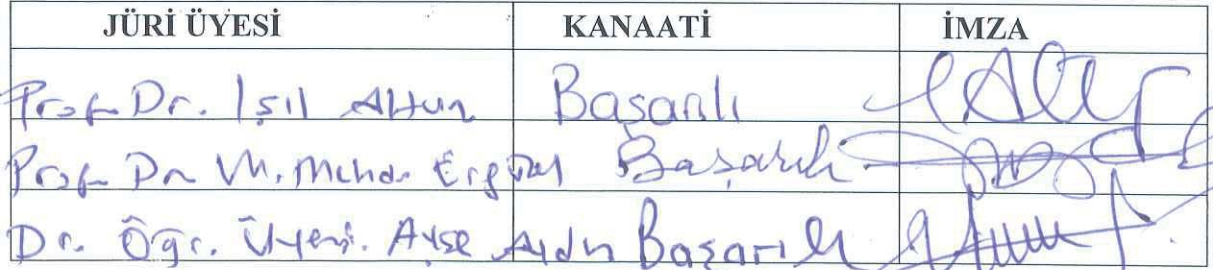 JÜRİ ÜYESİ KANAATİ İMZA
Prof. Dr. Işıl Altun Başarılı
Prof. Dr. M. Mehdi Ergüzel Başarılı
Dr. Öğr. Üyesi. Ayşe Aydın Başarılı